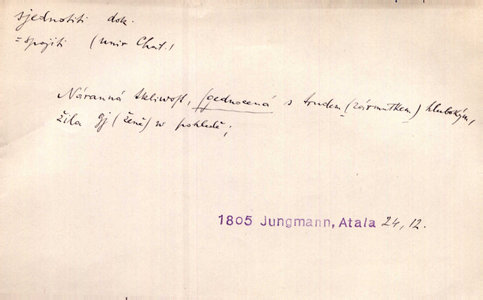 sjednotiti dok.
= spojiti (unir Chat.)
Náranná tklivost, sjednocená s trudem (zármutkem) hlubokým,
žila gj (ženě) w pohledě;
1805 Jungmann, Atala 24, 12.